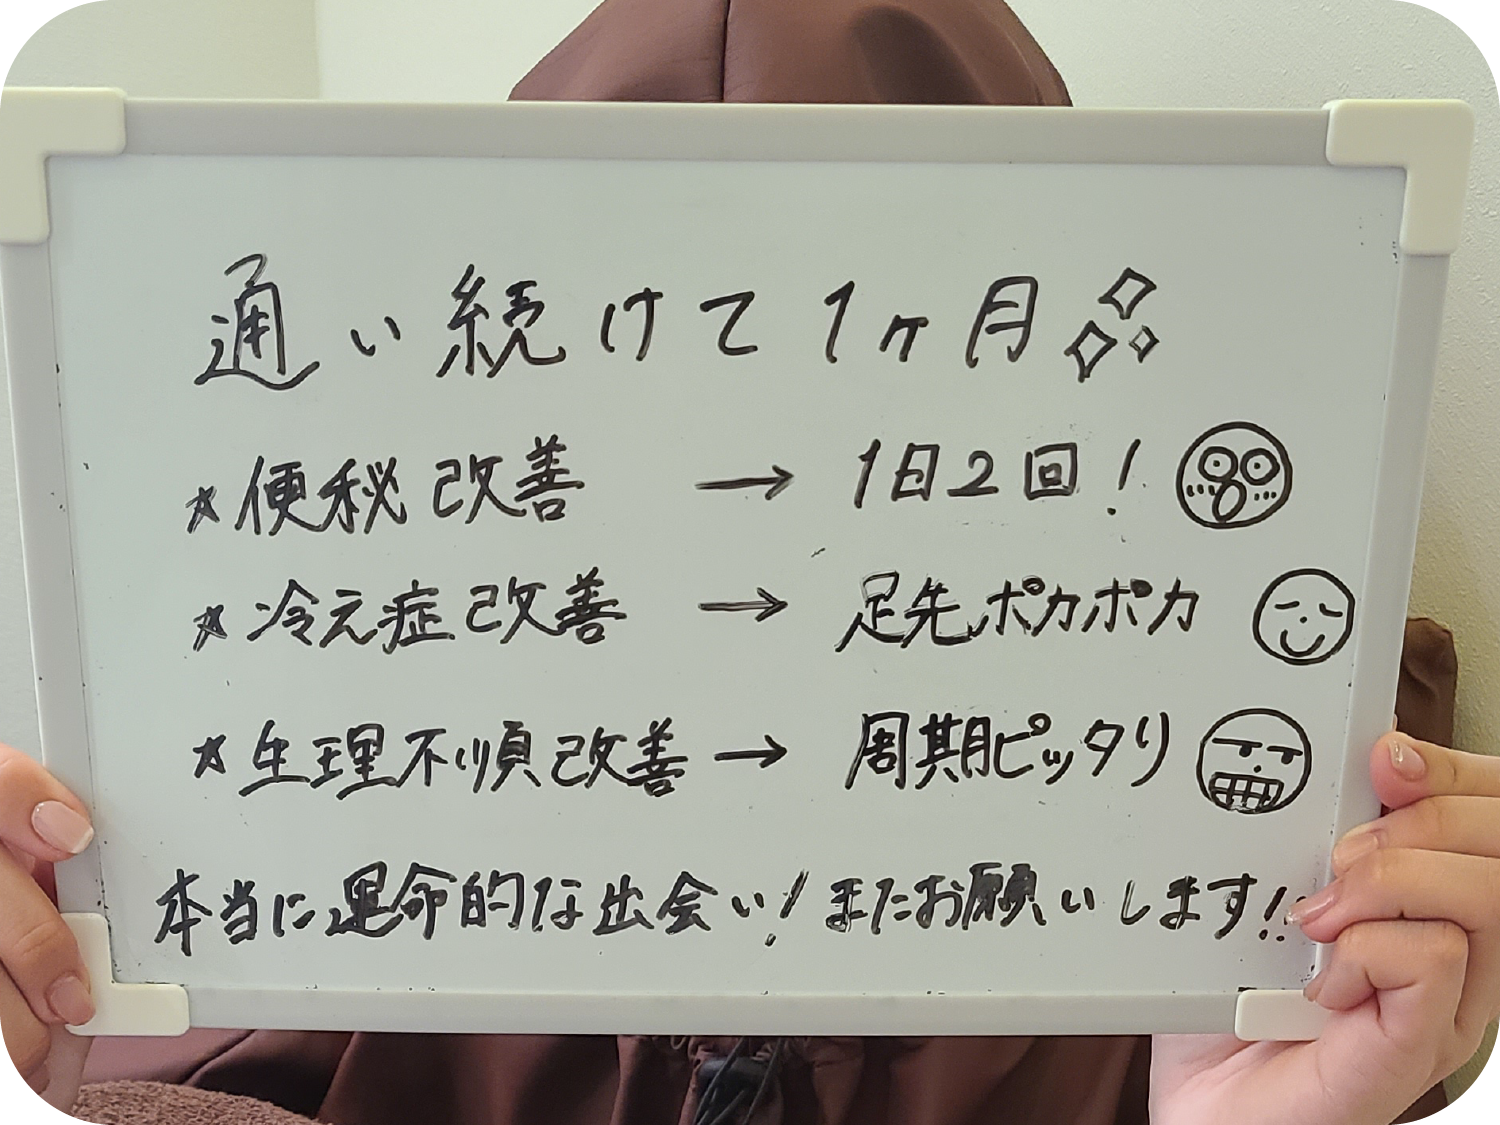 通い続けて1ヶ月
★便秘改善 → 1日2回！
★冷え症改善 → 足先ポカポカ
★生理不順改善 → 周期ピッタリ
本当に運命的な出会い！またお願いします!!